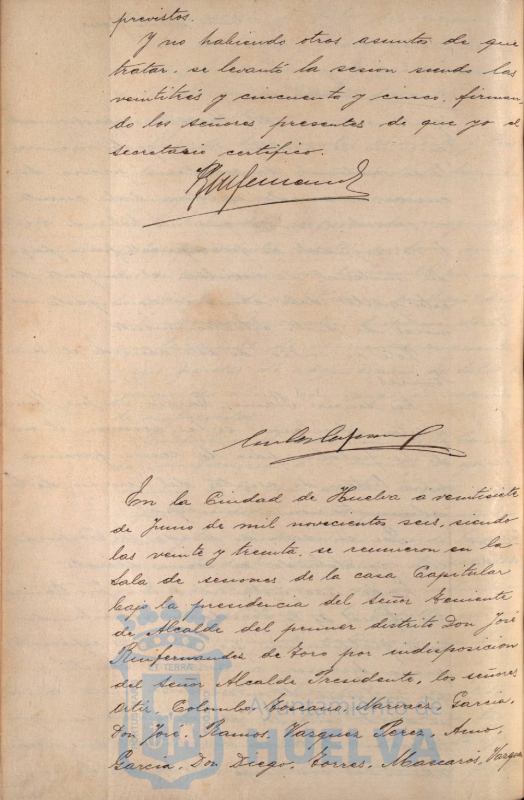 previstos.
Y no habiendo otros asuntos de que
tratar, se levantó la sesion siendo las
veintitrés y cincuenta y cinco, firman-
do los señores presentes de que yo el
secretario certifico.
En la Ciudad de Huelva á veintisiete
de Junio de mil novecientos seis, siendo
las veinte y treinta, se reunieron en la
Sala de sesiones de la casa Capitular
bajo la presidencia del señor Teniente
de Alcalde del primer distrito Don José
Ruifernandez de Toro por indisposicion
del señor Alcalde Presidente, los señores
Ortiz, Colombo, Toscano, Narvaez, Garcia,
Don José, Ramos, Vazquez Perez, Amo,
Garcia, Don Diego, Torres, Mascarós, Vazquez
Ayuntamiento de
HUELVA